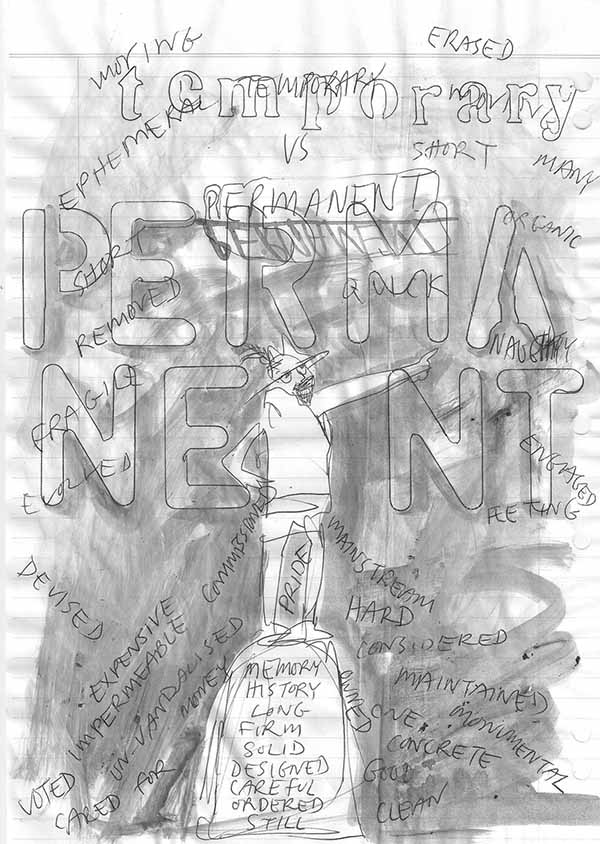 MOVING
ERASED
temporary
TEMPORARY
EPHEMERAL
VS
SHORT
MANY
PERMANENT
PERMANENT
ORGANIC
SHORT
QUICK
REMOVED
NAUGHTY
FRAGILE
ENGAGED
FLEETING
COMMISSIONED
DEVISED
PRIDE
MAINSTREAM
HARD
EXPENSIVE
IMPERMEABLE
UN-VANDALISED
MONEY
VOTED
CARED FOR
MEMORY
HISTORY
LONG
FIRM
SOLID
DESIGNED
CAREFUL
ORDERED
STILL
CONSIDERED
MAINTAINED
OWNED
ONE
MONUMENTAL
CONCRETE
GOOD
CLEAN